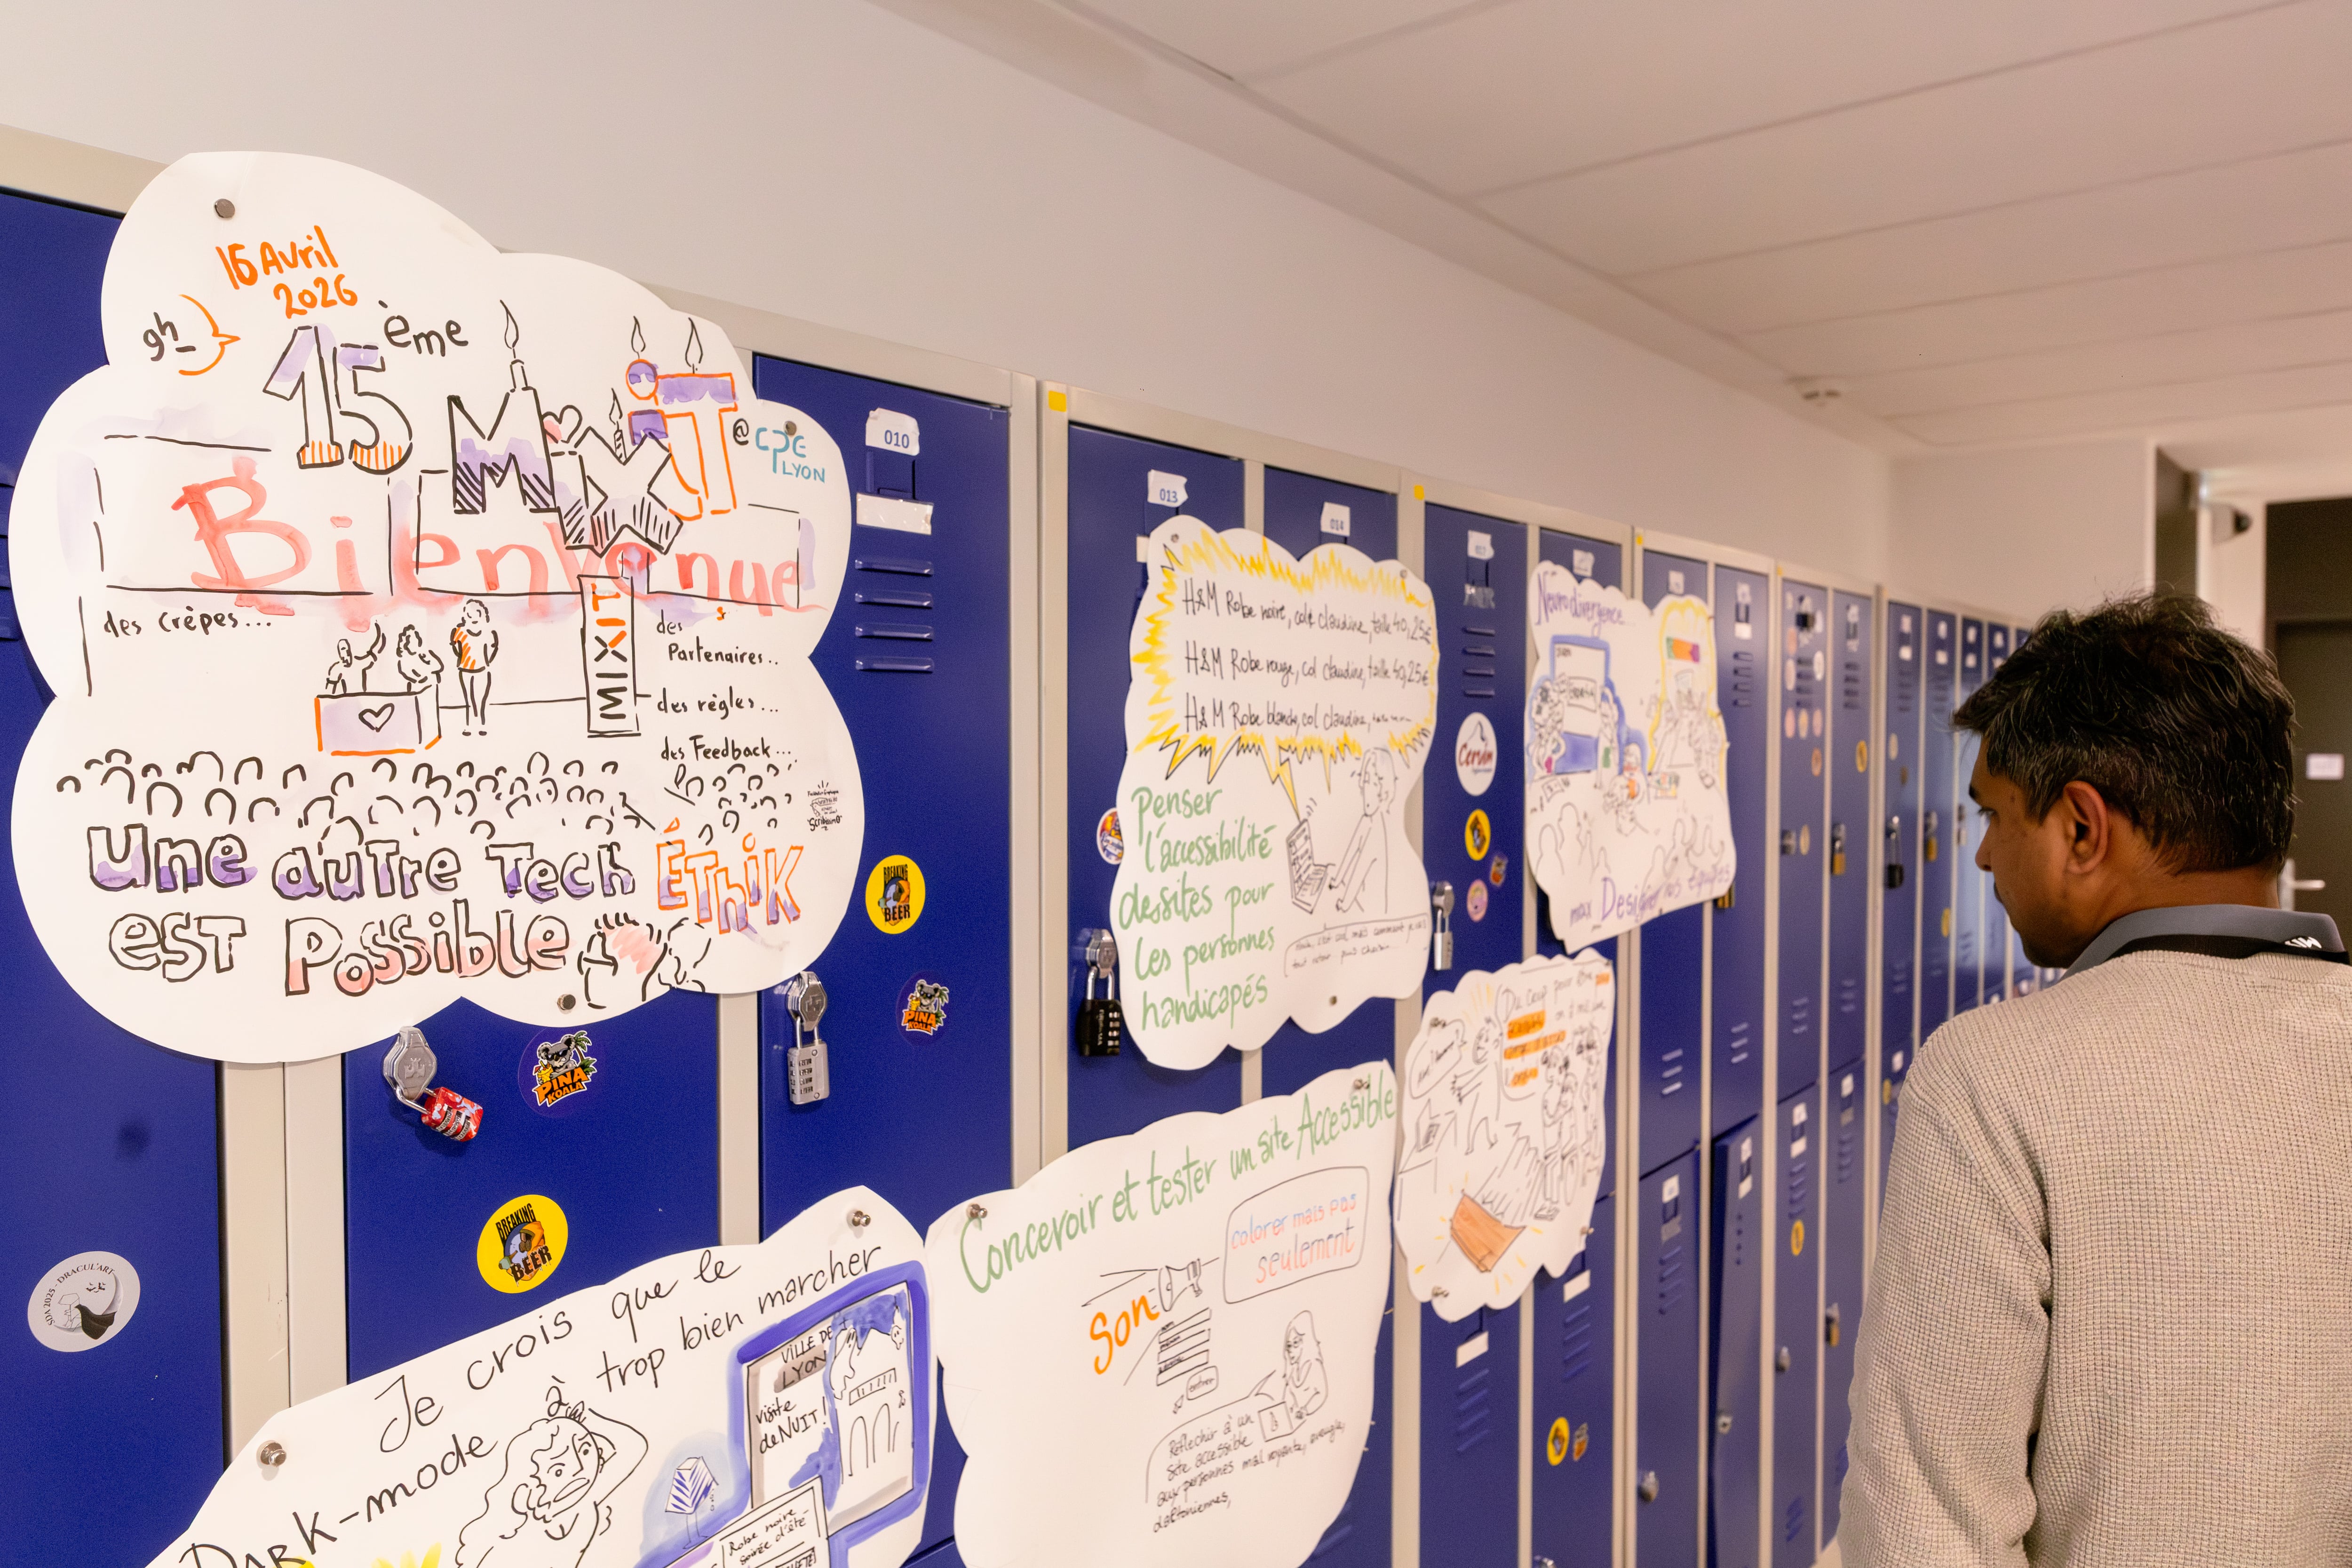 16 Avril
2026
9h_
15ème
MiXiT
@ CPE
LYON
Bienvenue
des crêpes...
MIXIT
des
Partenaires..
des règles...
des Feedback...
Une autre Tech
est possible
ÉThiK
010
013
014
BREAKING
BEER
PINA
KOALA
PINA
KOALA
BREAKING
BEER
SDA 2025 - DRACUL'ART
H&M Robe noire, col claudine, taille 40, 25€
H&M Robe rouge, col claudine, taille 40, 25€
H&M Robe blanche, col claudine,
Penser
l'accessibilité
des sites pour
les personnes
handicapés
Cervin
Neurodivergence...
Du coup pour être
Concevoir et tester un site Accessible
colorer mais pas
seulement
Son
Réfléchir à un
site accessible
aux personnes mal voyante, aveugle,
Je crois que le
Dark-mode à trop bien marcher
VILLE DE
LYON
visite
de NUIT!
Robe noire
soirée d'été